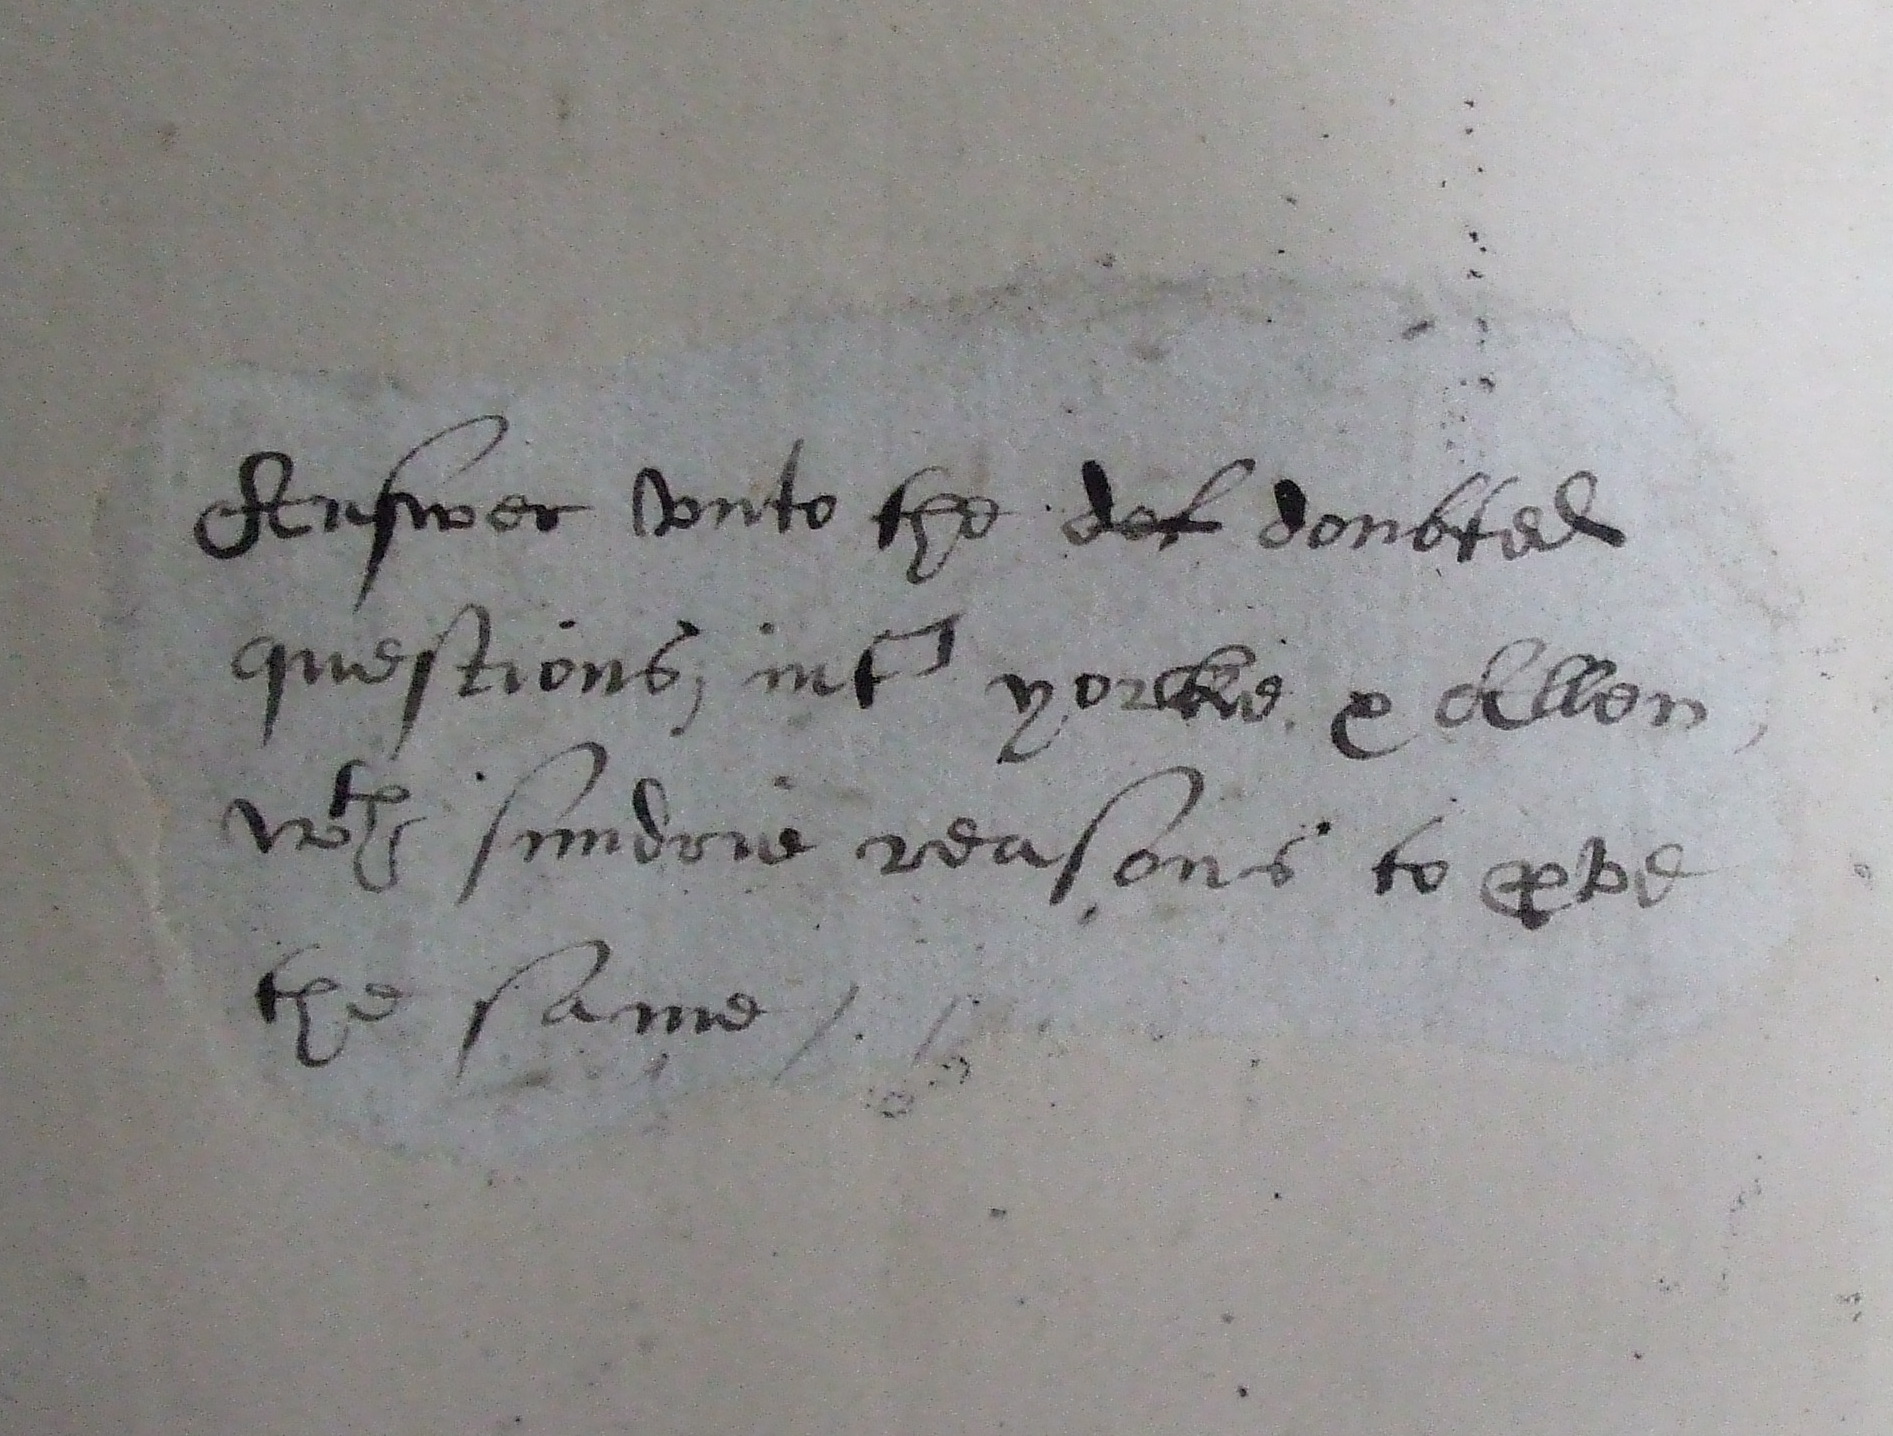 Answer vnto the def doubted
questions, int^r yorke & Allen,
w^th sundrie reasons to ꝓve
the same /. /